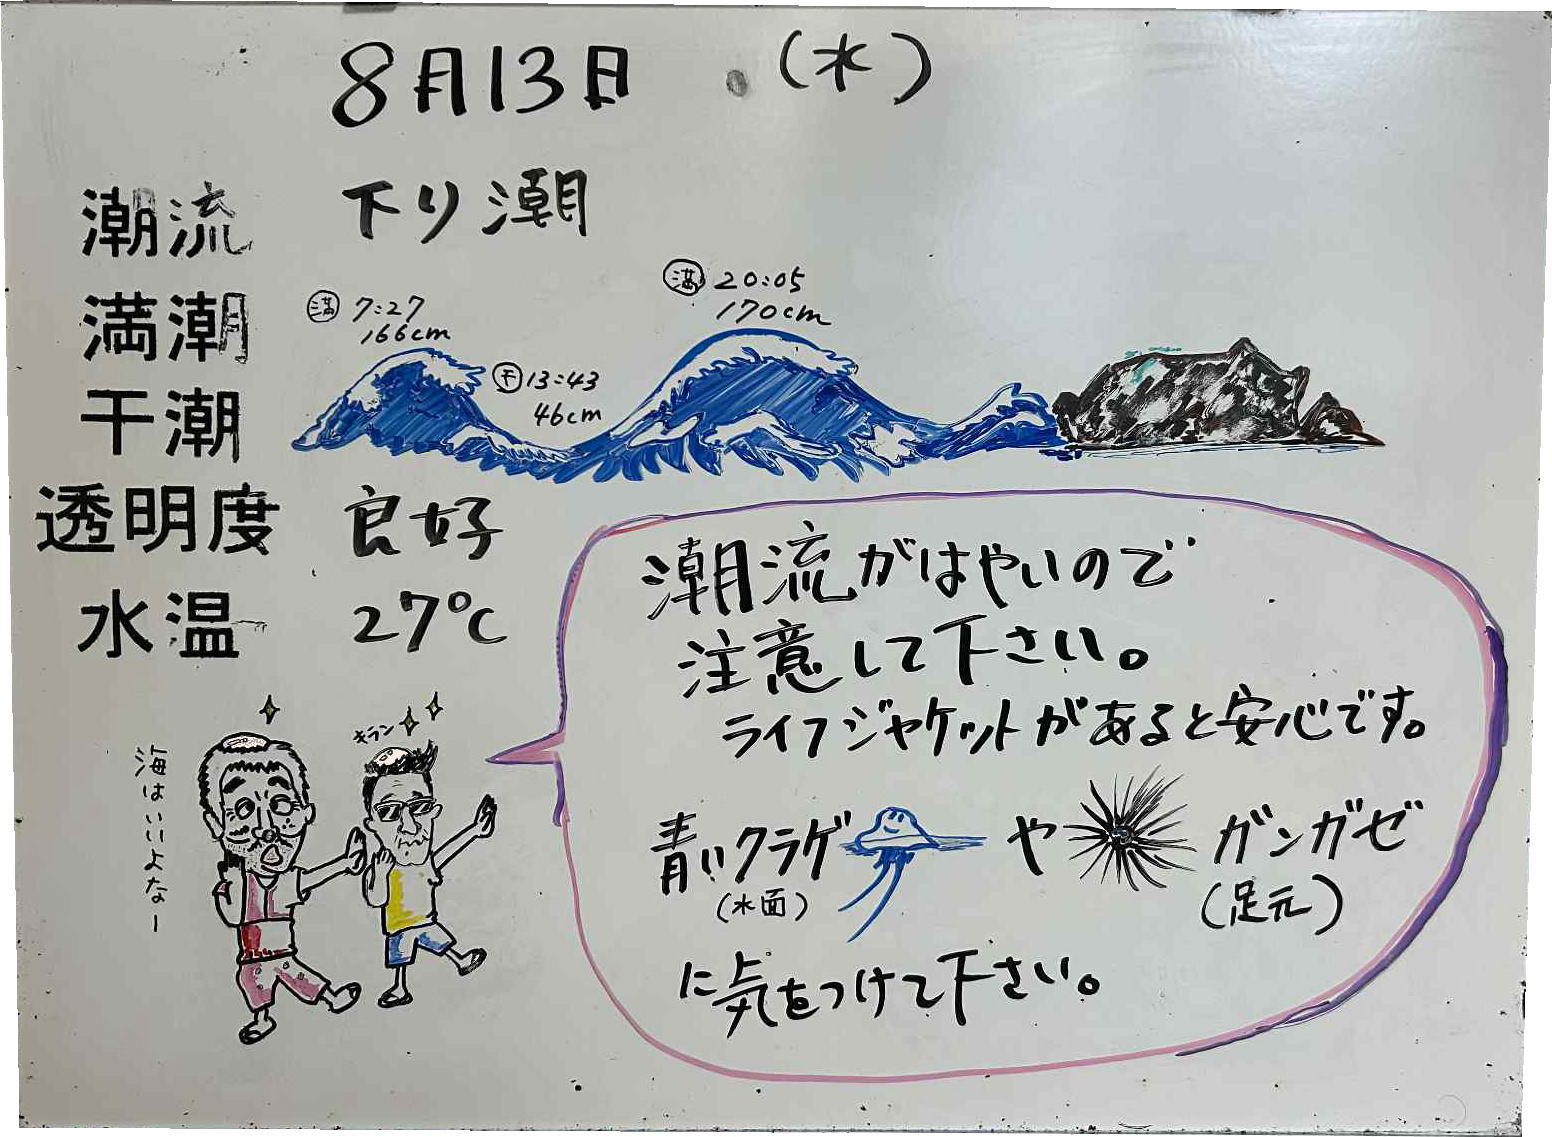 8月13日 (水)
潮流 下り潮
満潮
満 7:27
166cm
満 20:05
170cm
干潮
干 13:43
46cm
透明度 良好
水温 27℃
潮流がはやいので
注意して下さい。
ライフジャケットがあると安心です。
青いクラゲ や ガンガゼ
(水面) (足元)
に気をつけて下さい。
キラン
海はいいよなー